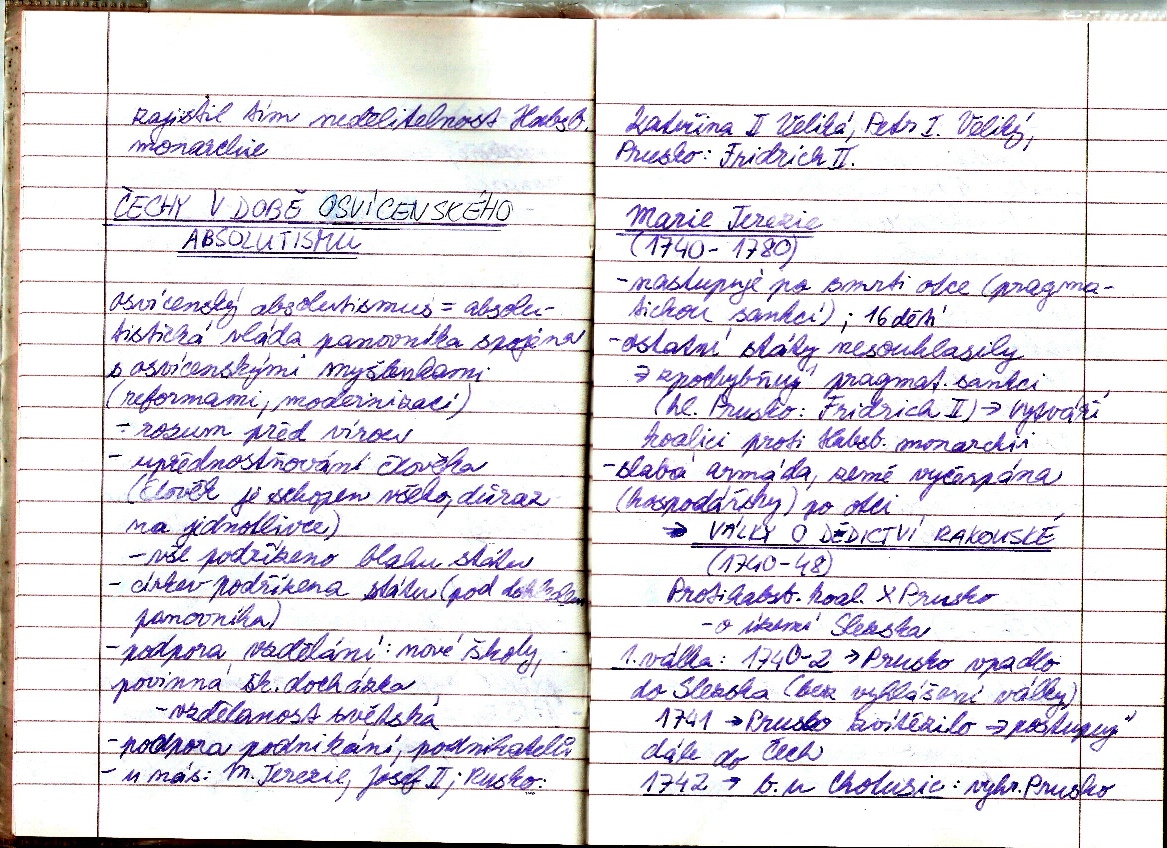 zajistil tím nedělitelnost Habsb.
monarchie
ČECHY V DOBĚ OSVÍCENSKÉHO
ABSOLUTISMU
osvícenský absolutismus = absolu-
tistická vláda panovníka spojena
s osvícenskými myšlenkami
(reformami, modernizací)
- rozum před vírou
- upřednostňování člověka
(člověk je schopen všeho, důraz
na jednotlivce)
- vše podřízeno blahu státu
- církev podřízena státu (pod dohledem
panovníka)
- podpora vzdělání: nové školy,
povinná šk. docházka
- vzdělanost světská
- podpora podnikání, podnikatelů
- u nás: M. Terezie, Josef II; Rusko:
Kateřina II Veliká, Petr I. Veliký,
Prusko: Fridrich II.
Marie Terezie
(1740 - 1780)
- nastupuje po smrti otce (pragma-
tickou sankcí) ; 16 dětí
- ostatní státy nesouhlasily
→ zpochybňují pragmat. sankci
(hl. Prusko: Fridrich II) → vytváří
koalici proti Habsb. monarchii
- slabá armáda, země vyčerpána
(hospodářsky) po otci
→ VÁLKY O DĚDICTVÍ RAKOUSKÉ
(1740-48)
Protihabsb. koal. X Prusko
- o území Slezska
1. válka: 1740-2 → Prusko vpadlo
do Slezska (bez vyhlášení války)
1741 → Prusko zvítězilo → postupují
dále do Čech
1742 → b. u Chotusic: vyhr. Prusko